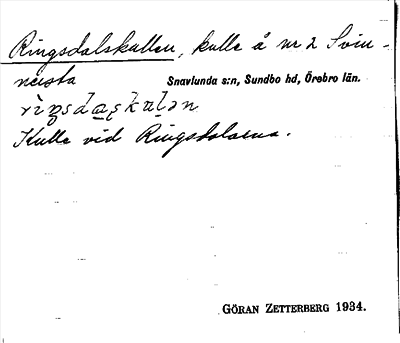 Ringsdalskullen, kulle å nr 2 Svin-
Snavlunda s:n, Sundbo hd, Örebro län.
Kulle vid Ringsdalarna.
GÖRAN ZETTERBERG 1934.